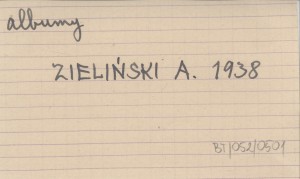 albumy
ZIELIŃSKI A. 1938
BT/052/0501